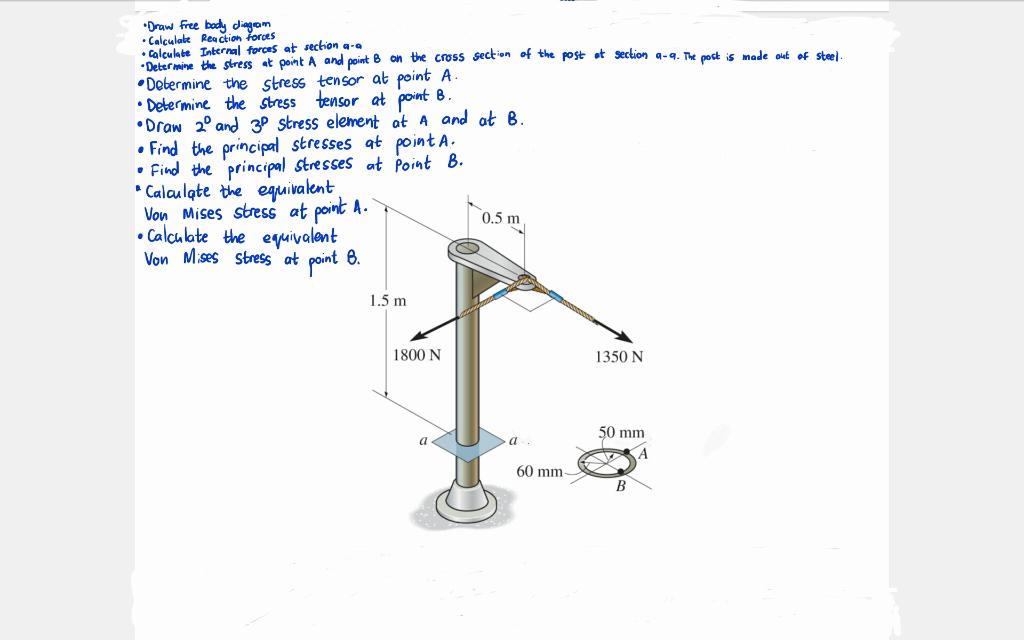 •Draw free body diagram
• Calculate Reaction forces
• Calculate Internal forces at section a-a
•Determine the stress at point A and point B on the cross section of the post at section a-a. The post is made out of steel.
•Determine the stress tensor at point A.
• Determine the stress tensor at point B.
•Draw 2D and 3D stress element at A and at B.
• Find the principal stresses at point A.
• Find the principal stresses at Point B.
• Calculate the equivalent
Von Mises stress at point A.
• Calculate the equivalent
Von Mises stress at point B.
0.5 m
1.5 m
1800 N
1350 N
a
a
50 mm
A
60 mm
B